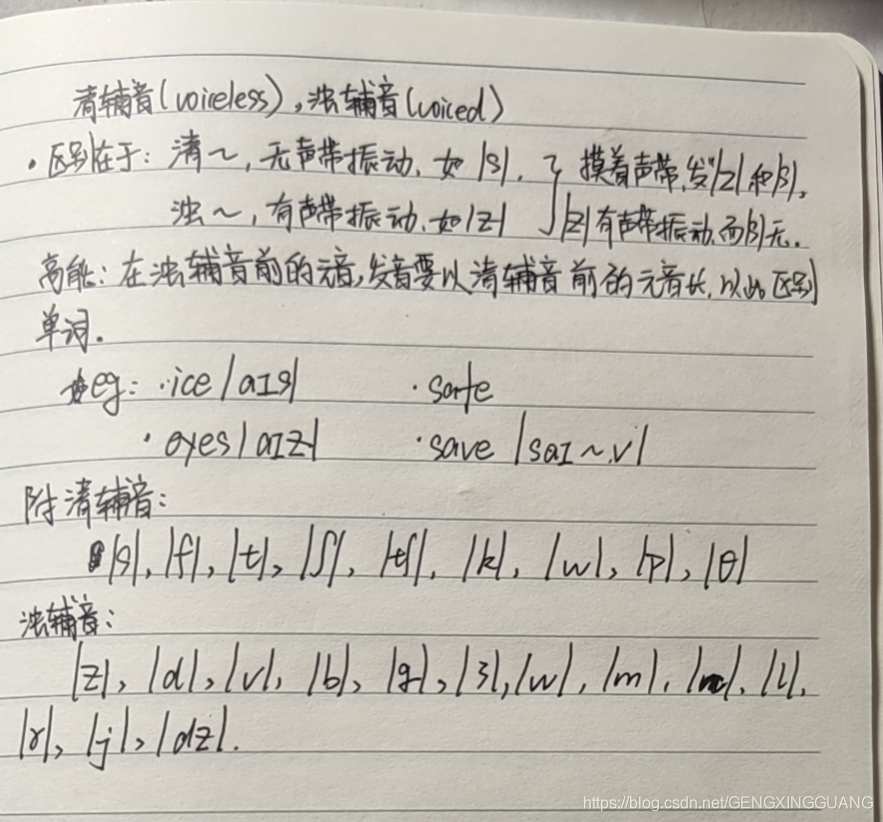 清辅音(voireless),浊辅音(voiced)
·区别在于: 清~,无声带振动,如|s|, } 摸着声带,发|z|和|s|,
浊~,有声带振动,如|z| |z|有声带振动,而|s|无.
高能:在浊辅音前的元音,发音要以清辅音前的元音长,以此区别
单词.
eg: ·ice |aɪs| ·safe
·eyes |aɪz| ·save |saɪ~v|
附清辅音:
|s|, |f|, |t|, |ʃ|, |tʃ|, |k|, |w|, |p|, |θ|
浊辅音:
|z|, |d|, |v|, |b|, |g|, |ʒ|, |w|, |m|, |n|, |l|,
|r|, |j|, |dz|.
https://blog.csdn.net/GENGXINGGUANG